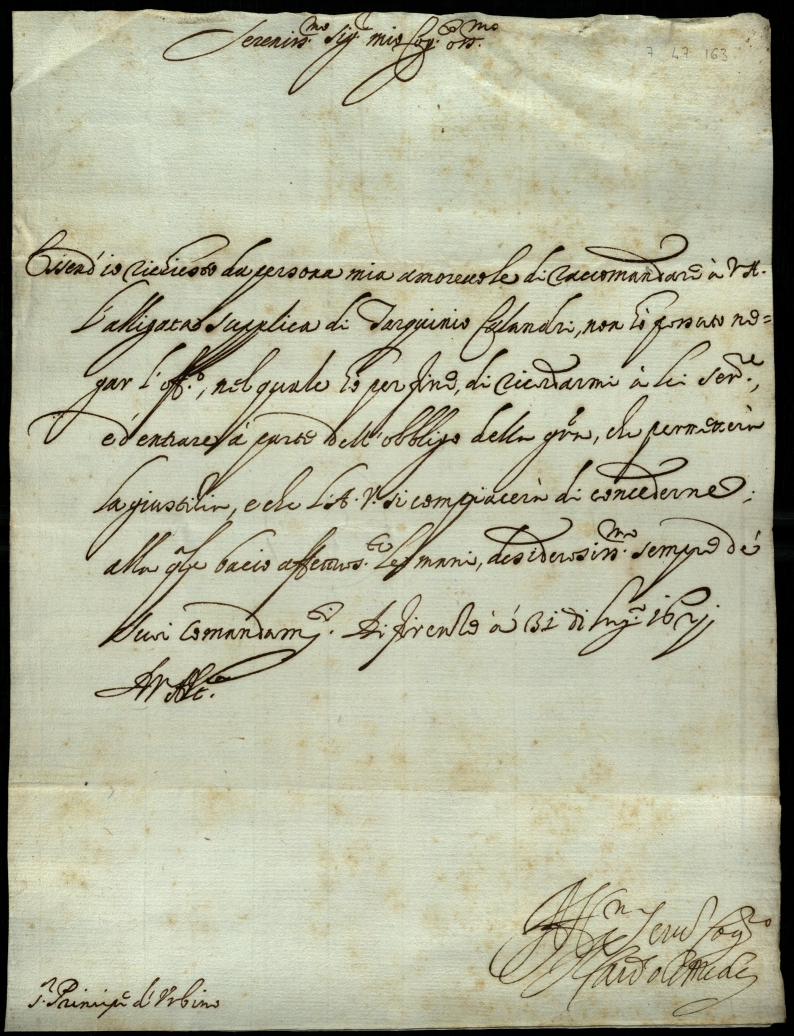 Sereniss.mo Sig.r mio Cog.o oss.mo
7 47 163
Essend'io richiesto da persona mia amoreuole di raccomandare à V.A.
l'alligata supplica di Tarquinio Calandri, non hò possuto ne=
gar l'off.o, nel quale hò per fine, di ricordarmi à lei ser.re,
ed entrare à parte dell'obbligo della gr̃a, che permetterà
la giustitia, e che l'A.V. si compiacerà di concederne;
alla q̃le bacio affettuos.te le mani, desiderosiss.mo sempre de'
suoi comandam.ti. Di firenze à 31 di
A V. Alt.za
Aff.mo Seru.re Cog.o
Il Card.l de Medici
S.r Principe d'Vrbino